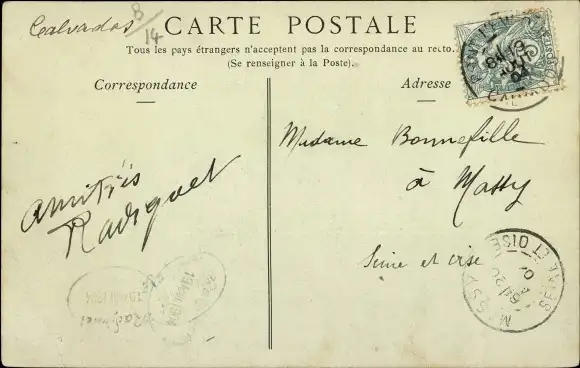 Calvados 8/14
CARTE POSTALE
Tous les pays étrangers n'acceptent pas la correspondance au recto.
(Se renseigner à la Poste).
Correspondance
Adresse
Madame Bonnefille
à Massy
Seine et oise
amitiés
Radiguet
MASSY
SEINE ET OISE